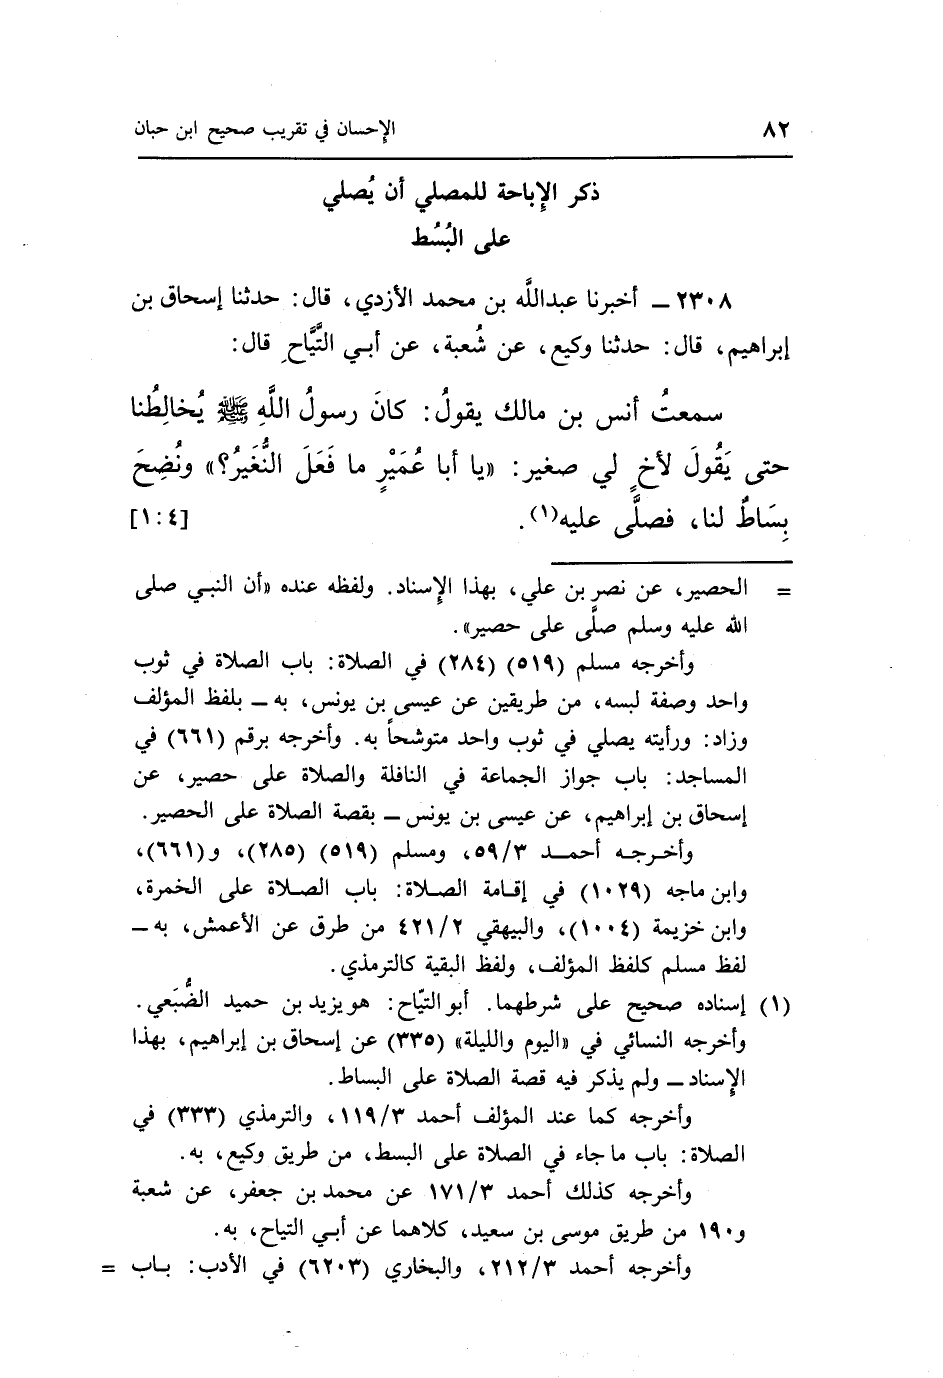 ٨٢ الإحسان في تقريب صحيح ابن حبان
ذكر الإباحة للمصلي أن يُصلي
على البُسُط
٢٣٠٨ ــ أخبرنا عبداللَّه بن محمد الأزدي، قال: حدثنا إسحاق بن
إبراهيم، قال: حدثنا وكيع، عن شُعبة، عن أبـي التَّيَّاحِ قال:
سمعتُ أنس بن مالك يقولُ: كانَ رسولُ اللَّهِ ﷺ يُخالِطُنا
حتى يَقُولَ لأخٍ لي صغير: «يا أبا عُمَيْرٍ ما فَعَلَ النُّغَيرُ؟» ونُضِحَ
بِسَاطٌ لنا، فصلَّى عليه(١). [٤: ١]
= الحصير، عن نصر بن علي، بهذا الإسناد. ولفظه عنده «أن النبـي صلى
الله عليه وسلم صلَّى على حصير».
وأخرجه مسلم (٥١٩) (٢٨٤) في الصلاة: باب الصلاة في ثوب
واحد وصفة لبسه، من طريقين عن عيسى بن يونس، به ــ بلفظ المؤلف
وزاد: ورأيته يصلي في ثوب واحد متوشحاً به. وأخرجه برقم (٦٦١) في
المساجد: باب جواز الجماعة في النافلة والصلاة على حصير، عن
إسحاق بن إبراهيم، عن عيسى بن يونس ــ بقصة الصلاة على الحصير.
وأخـرجـه أحمـد ٥٩/٣، ومسلم (٥١٩) (٢٨٥)، و(٦٦١)،
وابن ماجه (١٠٢٩) في إقـامة الصـلاة: باب الصـلاة على الخمرة،
وابن خزيمة (١٠٠٤)، والبيهقي ٤٢١/٢ من طرق عن الأعمش، به ــ
لفظ مسلم كلفظ المؤلف، ولفظ البقية كالترمذي.
(١) إسناده صحيح على شرطهما. أبو التيّاح: هو يزيد بن حميد الضُّبَعي.
وأخرجه النسائي في «اليوم والليلة» (٣٣٥) عن إسحاق بن إبراهيم، بهذا
الإسناد ــ ولم يذكر فيه قصة الصلاة على البساط.
وأخرجه كما عند المؤلف أحمد ١١٩/٣، والترمذي (٣٣٣) في
الصلاة: باب ما جاء في الصلاة على البسط، من طريق وكيع، به.
وأخرجه كذلك أحمد ١٧١/٣ عن محمد بن جعفر، عن شعبة
و١٩٠ من طريق موسى بن سعيد، كلاهما عن أبـي التياح، به.
وأخرجه أحمد ٢١٢/٣، والبخاري (٦٢٠٣) في الأدب: بـاب =